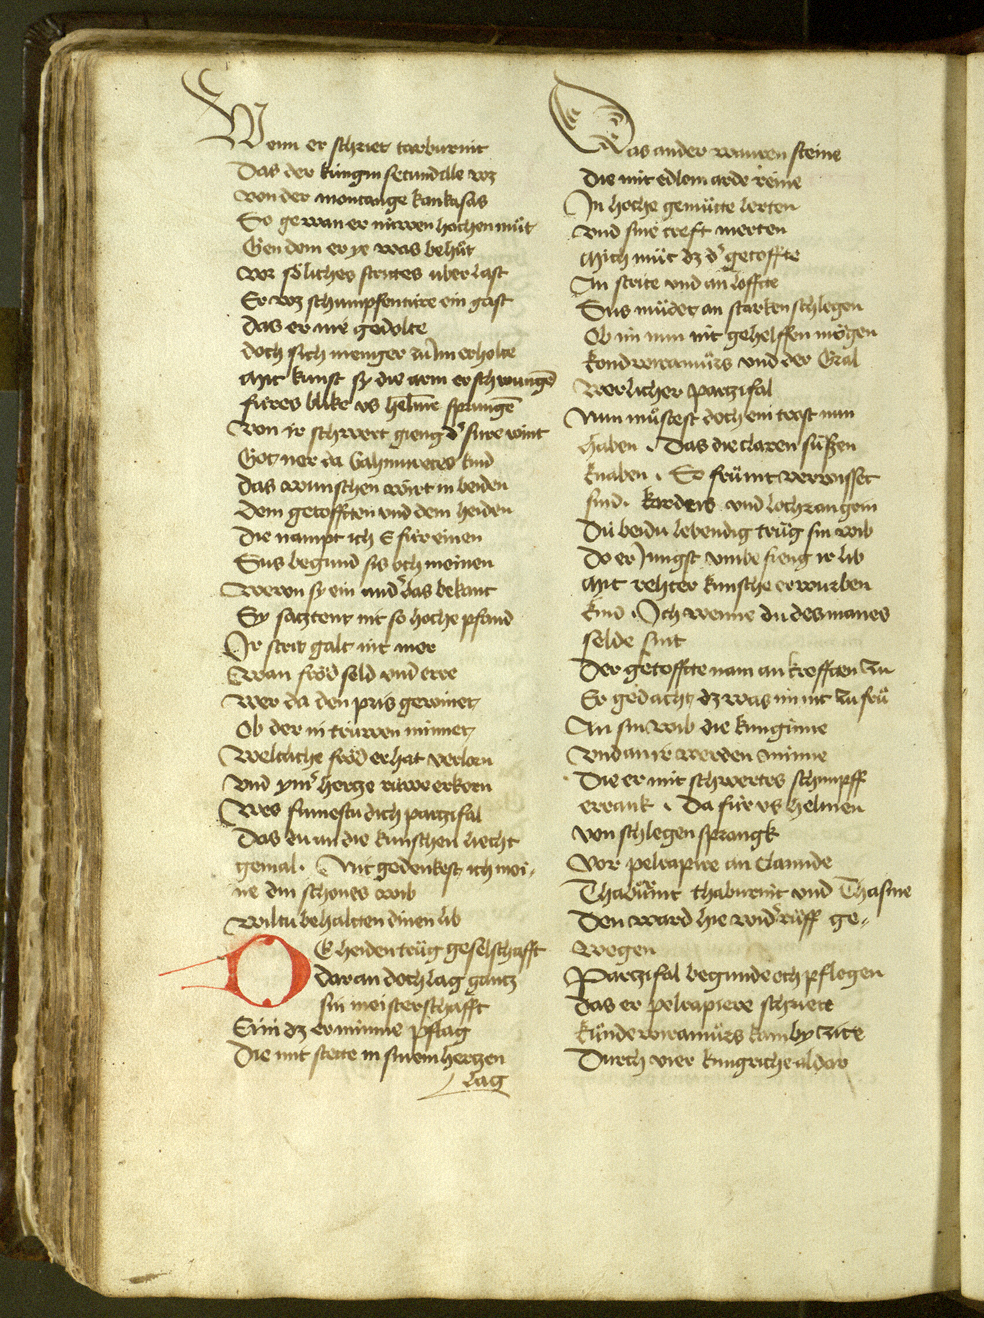 Wenn er schriet tarburnit
Das der küngin secundille wz
von der montange kankasas
So gewan er nüwen hochen müt
Gen dem er ye was behüt
vor söliches strites uber last
Er wz schumpfenture ein gast
das er nie gedolte
doch sich meniger zu Im erholte
Mit kunst sy die arm erschwungē
fures blike vs helmē sprungē
Von ir schwert gieng dˢ sure wint
Got ner da Gahmuretes kind
das wunschen wirt in beiden
Dem getofften vnd dem heiden
Die nampt ich E für einen
Sus begund sis och meinen
Weren sy ein andˢ bas bekant
Sy saztent nit so hoche pfand
Ir strit galt nit mer
Wan fröd seld vnd ere
Wer da den pris gewinet
Ob der in trüwen minnet
Weltliche fröd er hat verlorn
Vnd ymˢ hertze ruwe erkorn
Wes sumestu dich parzifal
Das du an die künschen liecht
gemal. Nit gedenkest ich mei-
ne din schönes wib
wiltu behaltten dinen lib
DE heiden trüg geselschafft
dar an doch lag gantz
sin meisterschafft
Ein dz er minne pflag
Die mit stette in sinem hertzen
lag
Das ander waren steine
Die mit edlem arde reine
In hoche gemütte lerten
vnd sine creft merten
Mich müt dz dˢ getoffte
An strite vnd an loffte
Sus müdet an starken schlegen
Ob im nun nit gehelffen mögen
kondwiramürs vnd der Gral
Werlicher parzifal
Nun müstest doch ein trost nun
haben. Das die claren süssen
knaben. So früntt verwisset
sind. kardeis vnd lochrangein
Dü beidu lebendig trüg sin wib
Do er Jungst vmbe fieng ir lib
Mit rehter künsche erwurben
kind. Ich wenne du des manes
selde sint
Der getoffte nam an krefften zu
Er gedacht dz was im nit zu frü
An sin wib die kunginne
vnd an ir werden minne
Die er mit schwertes schimpff
errank. Da für vs helmen
von schlegen sprangk
Vor pelrapire an clamide
Thabrünit thaburnit vnd Thasme
Den ward hie widˢ rüff ge-
wegen
Parzifal begunde och pflegen
das er pelrapiere schriett
kündewiramürs kam by zite
Durch vier kungriche aldar